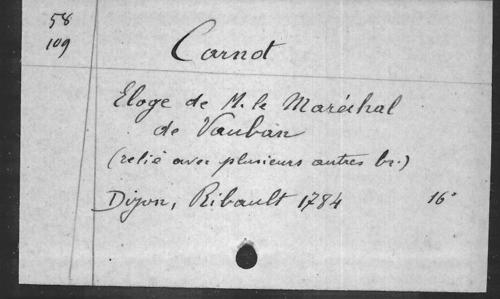 58
109
Carnot
Eloge de M. le Maréchal
de Vauban
(relié avec plusieurs autres br.)
Dijon, Ribault 1784 16°